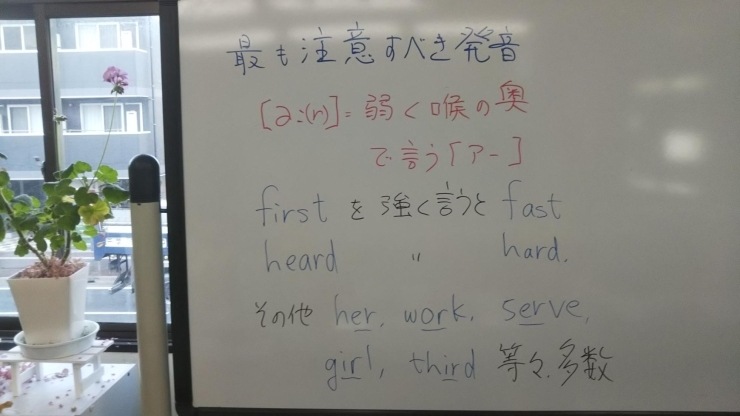 最も注意すべき発音
[ə:(r)]=弱く喉の奥
で言う「アー」
first を 強く言うと fast
heard 〃 hard.
その他 her, work, serve,
girl, third 等々多数